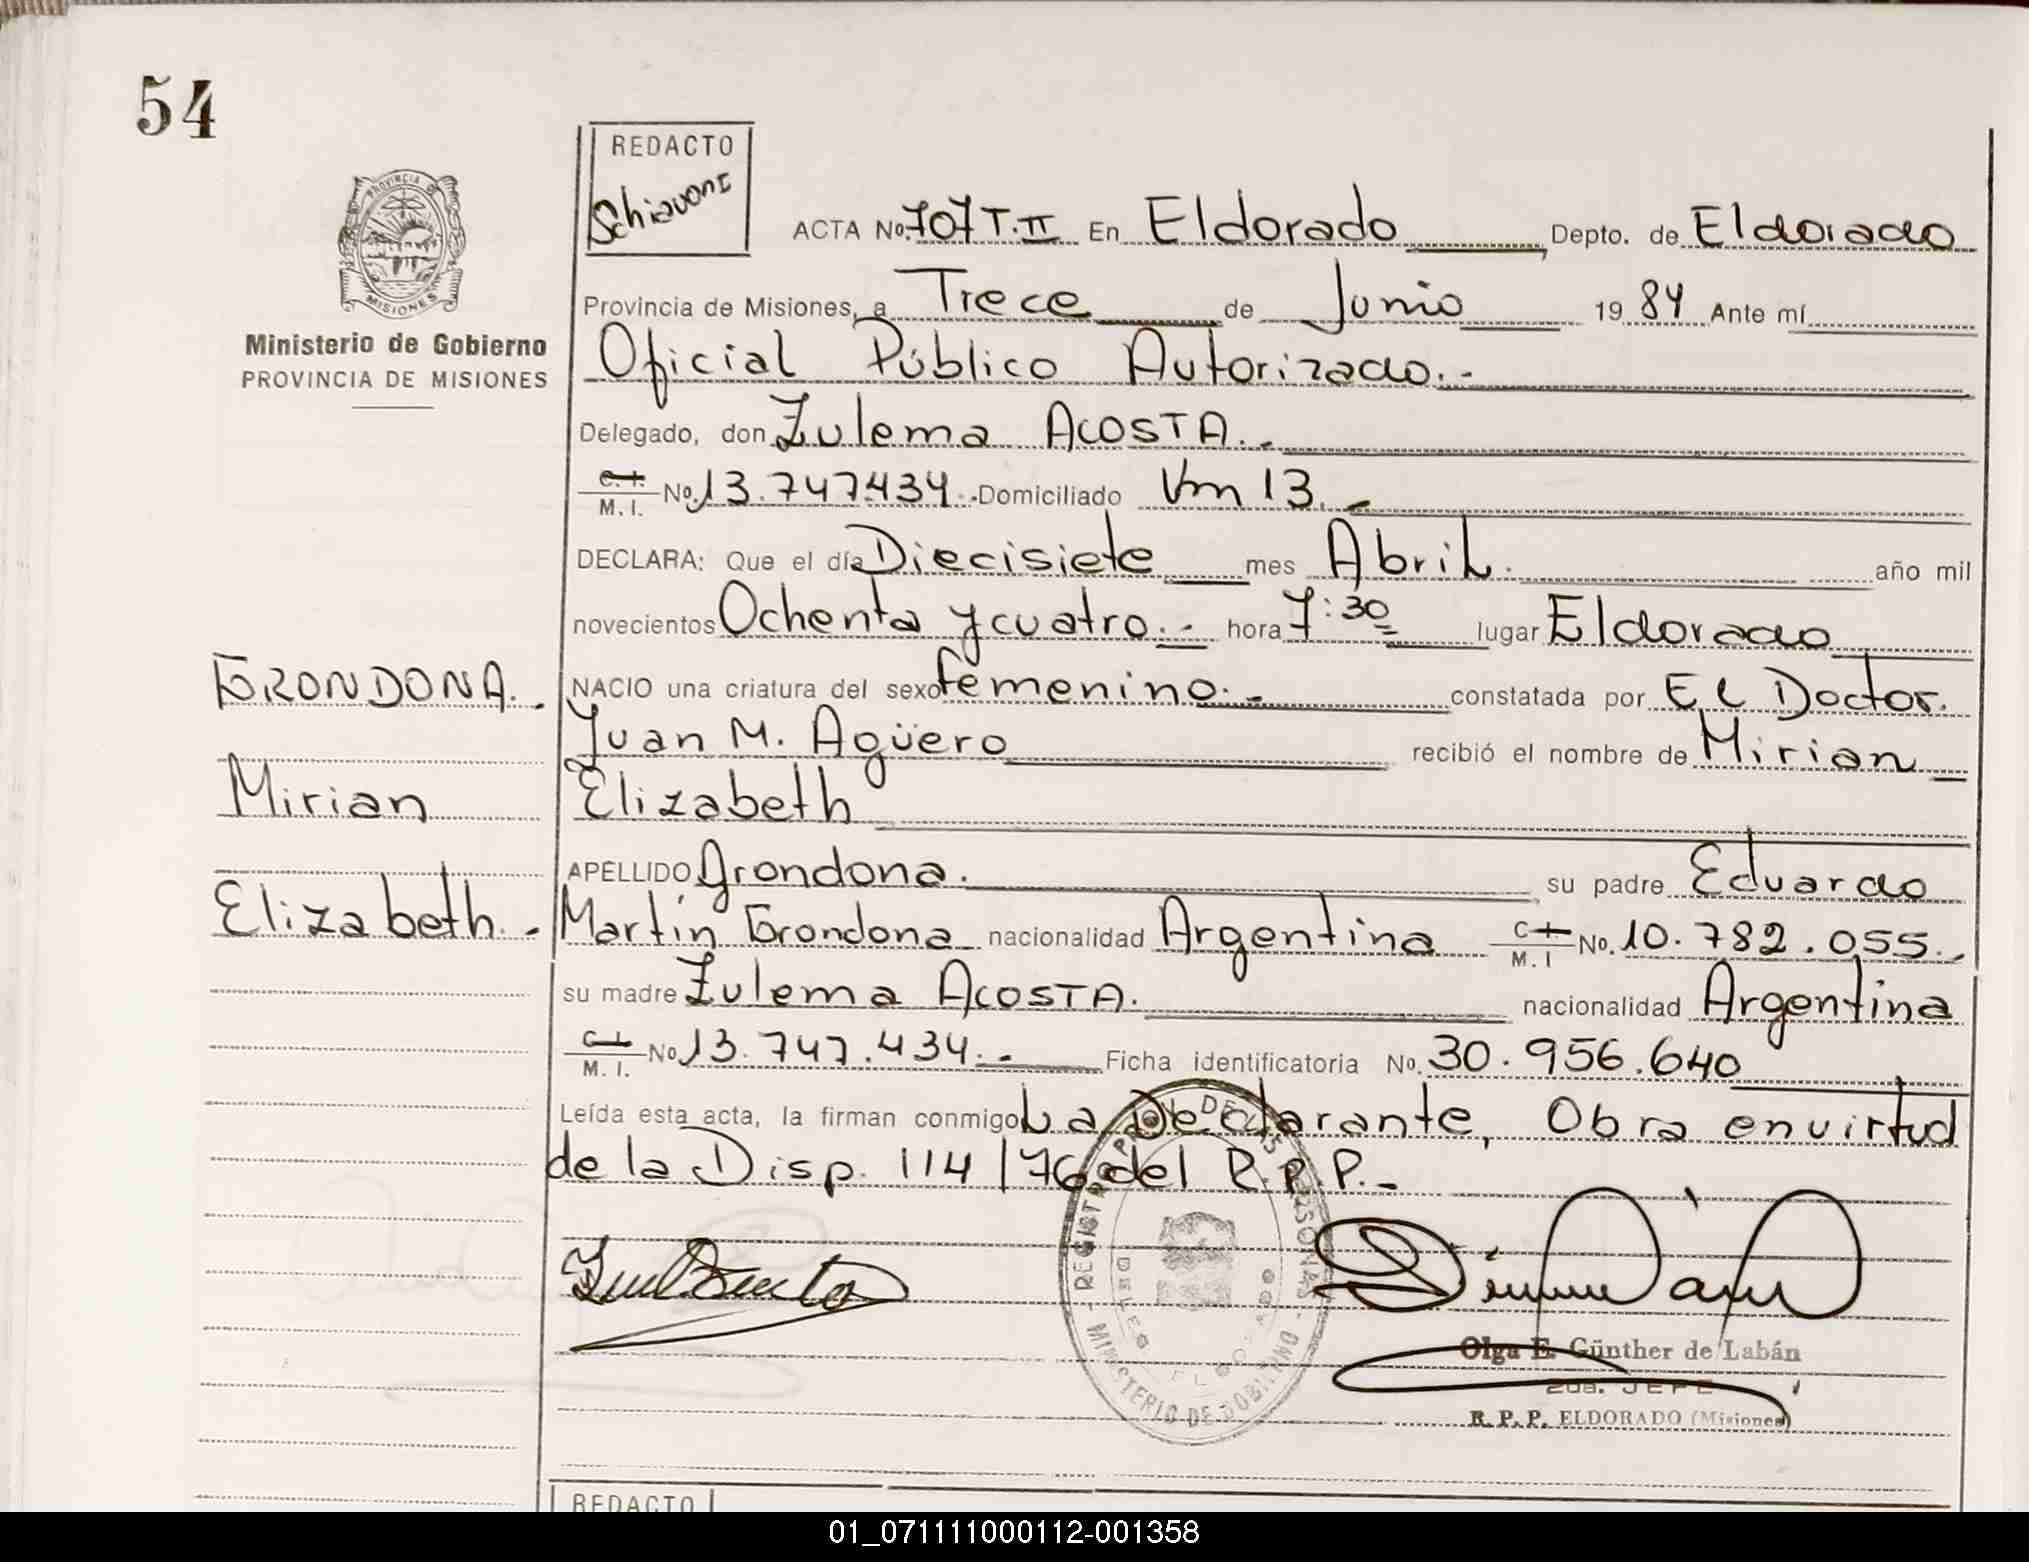 54
REDACTO
Schiavoni
PROVINCIA DE
MISIONES
Ministerio de Gobierno
PROVINCIA DE MISIONES
ACTA No. 707 T. II En Eldorado, Depto. de Eldorado
Provincia de Misiones, a Trece de Junio 1984 Ante mí
Oficial Público Autorizado.-
Delegado, don Zulema ACOSTA.-
C. I. / M. I. No. 13.747.434.- Domiciliado Km 13.-
DECLARA: Que el día Diecisiete mes Abril. año mil
novecientos Ochenta y cuatro.- hora 7:30 lugar Eldorado
NACIO una criatura del sexo femenino.- constatada por El Doctor.
Juan M. Agüero recibió el nombre de Mirian
Elizabeth
APELLIDO Grondona. su padre Eduardo
Martín Grondona nacionalidad Argentina C I / M. I No. 10.782.055.-
su madre Zulema ACOSTA. nacionalidad Argentina
C I / M. I. No. 13.747.434.- Ficha identificatoria No. 30.956.640
Leída esta acta, la firman conmigo La Declarante, Obra en virtud
de la Disp. 114/76 del R.P.P.-
GRONDONA.-
Mirian
Elizabeth.-
REGISTRO DE LAS PERSONAS - MINISTERIO DE GOBIERNO
Olga E. Günther de Labán
2da. JEFE
R. P. P. ELDORADO (Misiones)
REDACTO
01_071111000112-001358